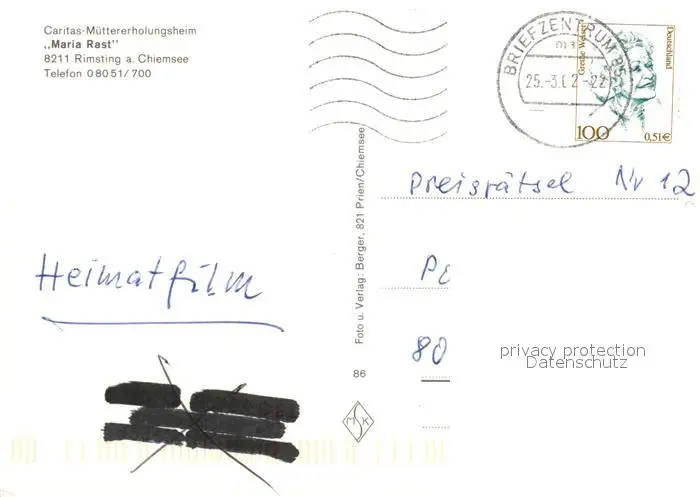 Caritas-Müttererholungsheim
„Maria Rast"
8211 Rimsting a. Chiemsee
Telefon 0 80 51/700
Heimatfilm
Foto u. Verlag: Berger, 821 Prien/Chiemsee
86
MSK
BRIEFZENTRUM 85
25.-3.02-22
Grethe Weiser
Deutschland
100
0,51€
Preisrätsel Nr 12
80
privacy protection
Datenschutz